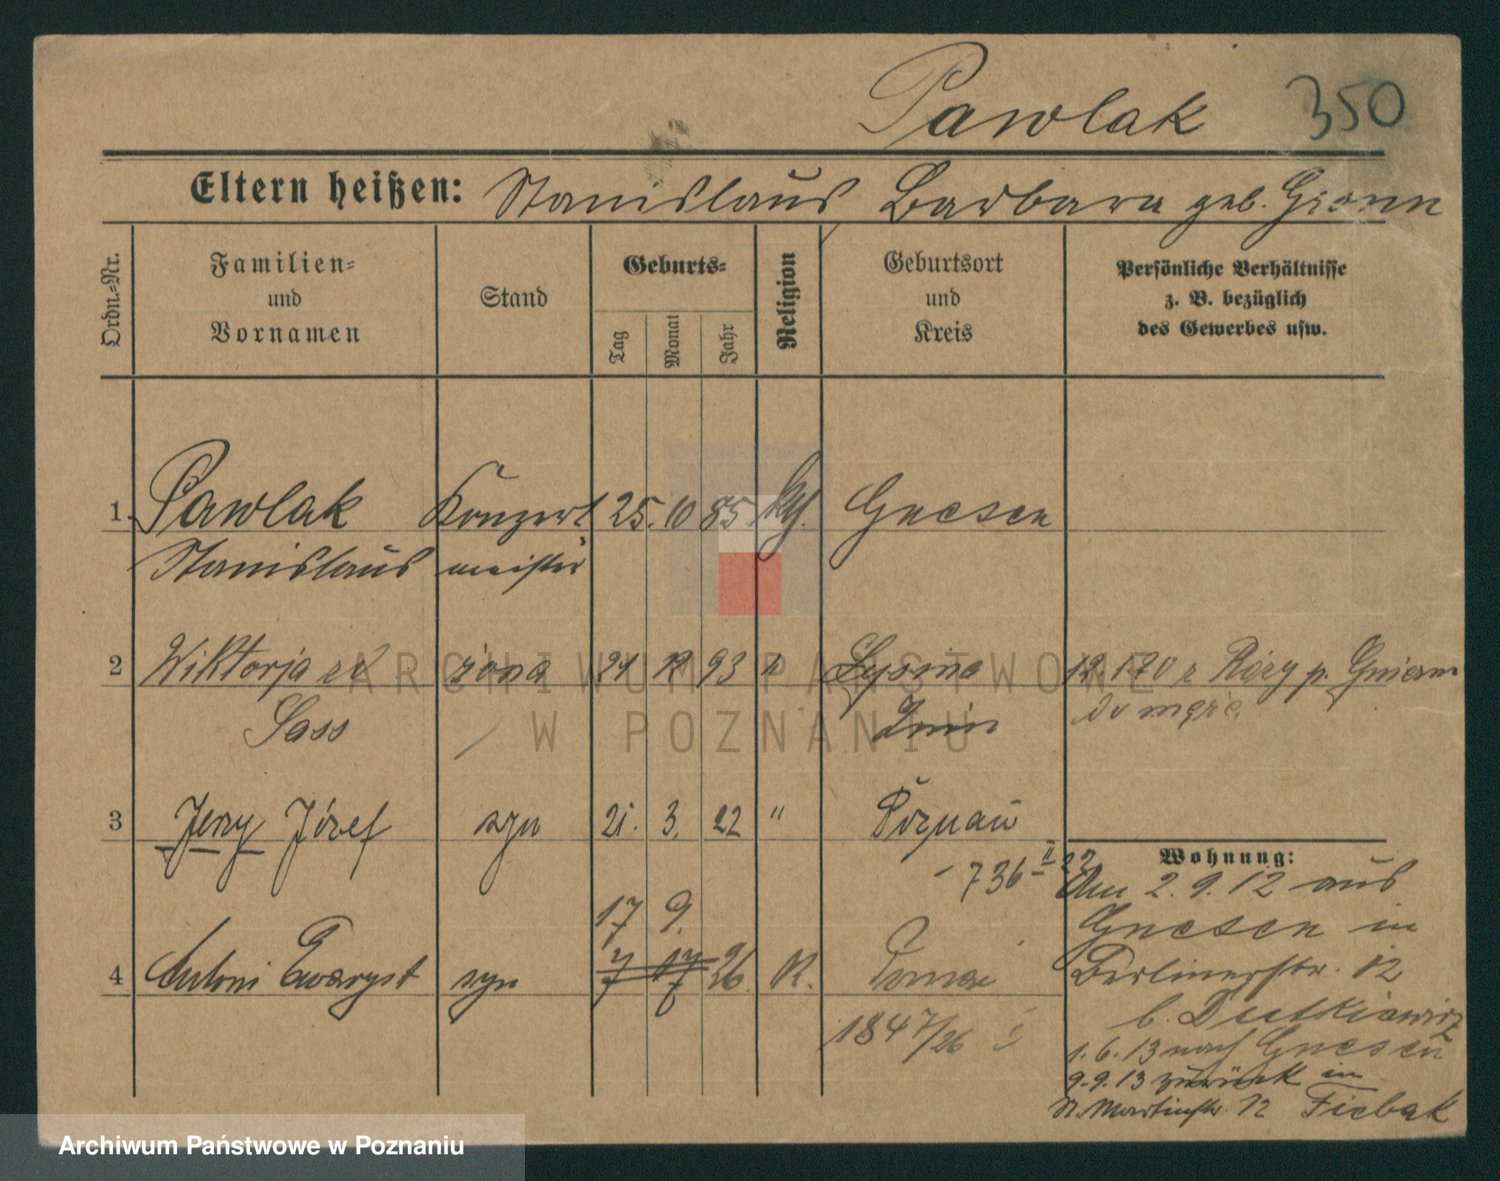 Pawlak 350
Eltern heißen: Stanislaus Barbara geb. Gionn
Ordn.=Nr.
Familien=
und
Vornamen
Stand
Geburts=
Tag
Monat
Jahr
Religion
Geburtsort
und
Kreis
Persönliche Verhältnisse
z. B. bezüglich
des Gewerbes usw.
1. Pawlak Konzert 25. 10 85 Gnesen
Stanislaus meister
2 Wiktorja żona 21 12 93 " 12.
Sass Żnin
3 Jerzy Józef syn 21. 3. 22 " Poznań
736 II 22
Wohnung:
Am 2.9.12 aus
Gnesen in
17 9.
4 Antoni Ewaryst syn 26. K.
Berlinerstr. 12
1847/26
b. Dutkiewicz
1.6.13 nach Gnesen
9.9.13 zurück in
St. Martinstr. 12 Fiebak
ARCHIWUM PAŃSTWOWE
W POZNANIU
Archiwum Państwowe w Poznaniu